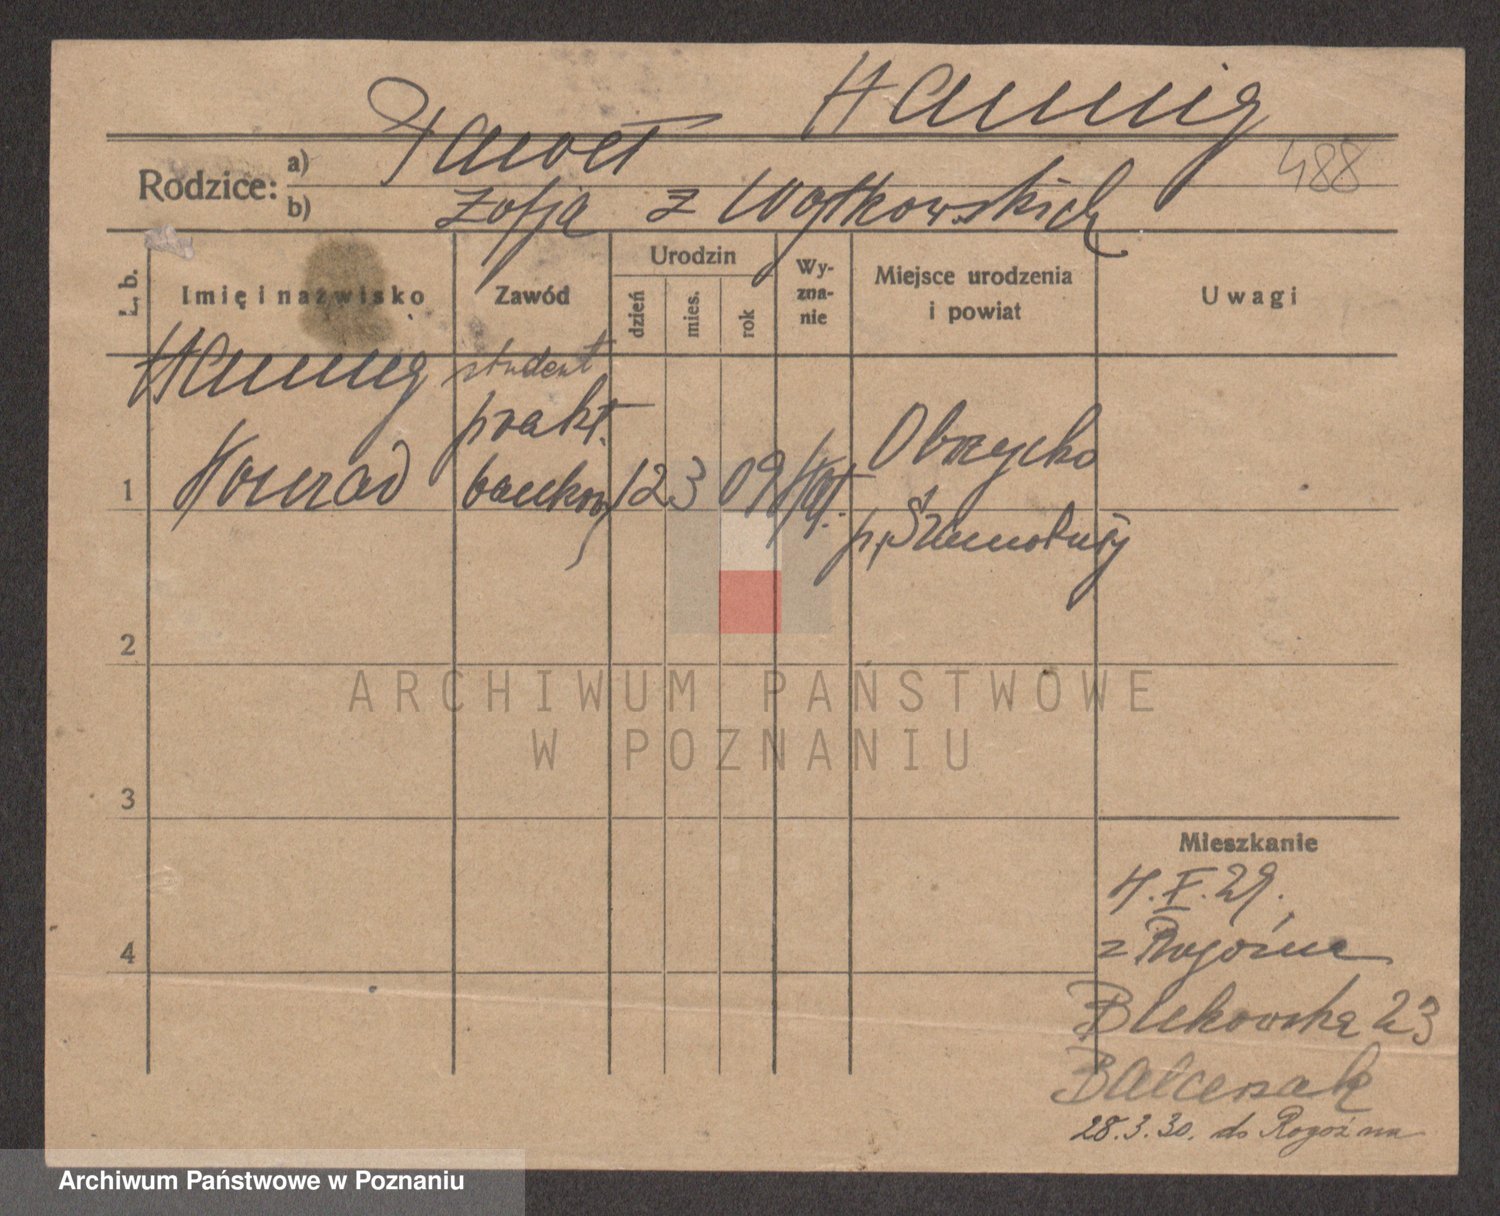 Hannig
Rodzice: a) Paweł
488
b) Zofja z Wojtkowskich
L. b.
Imię i nazwisko
Zawód
Urodzin
dzień
mies.
rok
Wy-
zna-
nie
Miejsce urodzenia
i powiat
Uwagi
Hannig
student
prakt.
Obrzycko
1 Konrad bankowy 12 3 09 kat.
p. Szamotuły
2
ARCHIWUM PAŃSTWOWE
W POZNANIU
3
Mieszkanie
4. X. 29.
z Rogoźna
4
Bukowska 23
Balcerzak
28.3.30. do Rogoźna
Archiwum Państwowe w Poznaniu